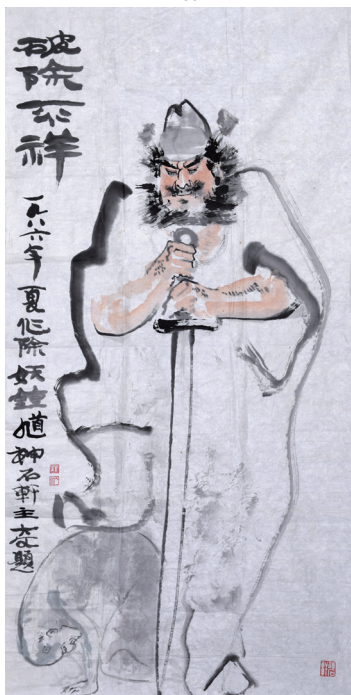 破除不祥
一九八六年夏作除妖鍾馗神石軒主題